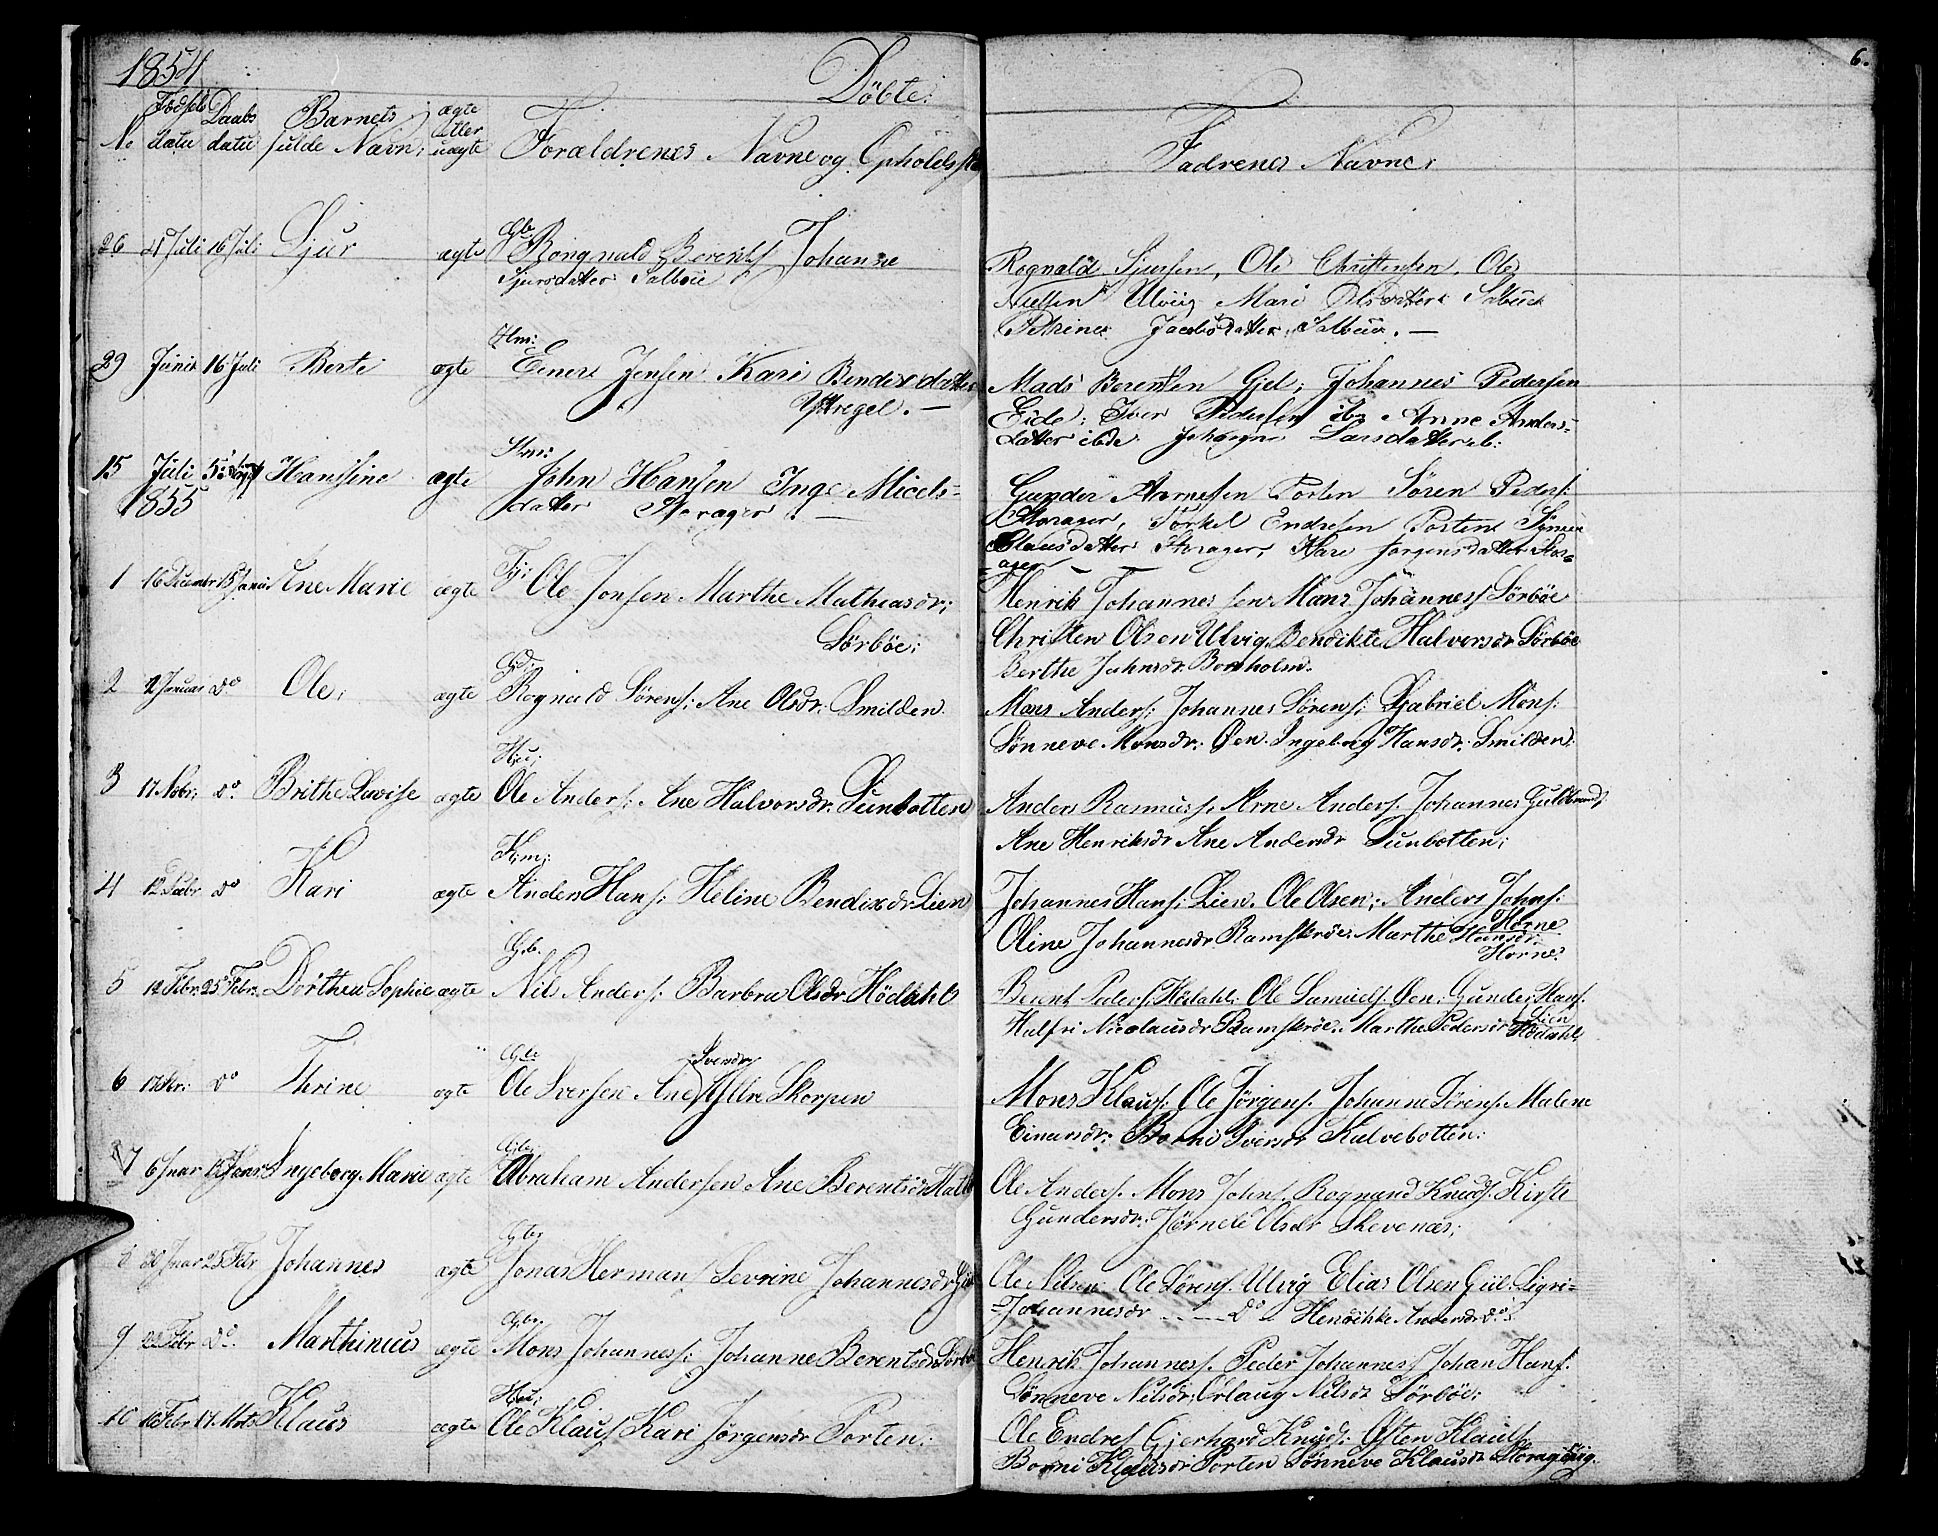 1854
Döbte:
6.
No
Fødsels datu
Daabs datu
Barnets fulde Navn;
ægte eller uægte
Forældrenes Navne og Opholdsst
Fadrenes Navne:
26 Juli 16 Juli Sjur ægte Gb. Rangnald Berents Johanne
Sjursdatter Salbøe
Rognald Sjursen, Ole Christensen, Ole
Nielsen Ulvig Mari Olsdatter Salbue
Petrine Jacobsdatter Salbue. —
29 Junii 16 Juli Berte ægte Hm: Einert Jensen Kari Bendixdatter
Ystregel. —
Mads Berentsen Gjel; Johannes Pedersen
Eide; Iver Pedersen ib. Anne Anders-
datter ibde Johanne Larsdatter ib:
15 Juli Hanssine ægte Hm: John Hansen Inge Micels-
datter Storager. —
Gunder Arnesen Porten Sören Peders:
Storager, Torkel Endresen Porten
Clausdatter Storager Kari Jørgensdatter Stor-
ager —
1855
1 16 Decembr 15 Januar Ane Marie ægte Fj: Ole Jonsen Marthe Mathiasdr;
Sörböe;
Henrik Johannessen Mons Johanness Sörböe
Christen Olsen Ulvig Bendikte Halvorsdr Sörböe
Berthe Johnsdr Bornholm.
2 Januar do Ole; ægte Gd: Rognald Sörens: Ane Olsdr: Smilden.
Mons Anders: Johannes Sörens: Gabriel Mons:
Sönneve Monsdr: Øen Ingeborg Hansdr: Smilden:
3 17 Nobr; do. Brithe Lovise ægte Hu; Ole Anders: Ane Halvorsdr. Sunbotten
Anders Rasmuss. Arne Anders: Johannes Guldbrands
Ane Henriksdr Ane Andersdr Sunbotten;
4 12 do Kari ægte Hm; Anders Hans: Heline Bendixdr Lien
Johannes Hans: Lien. Ole Olsen; Anders Johns:
Oline Johannesdr Ramskröe: Marthe Hansdr:
Horne
5 12 Febr. 25 Febr. Dorthea Sophie ægte Gb. Nils Anders: Barbra Olsdr Hödahl
Bernt Peders: Hödahl: Ole Samuels. Øen; Gunder Hans:
Lien
Halfri Nicolausdr Ramskröe. Marthe Pedersdr Hödahl
6 do Thrine ægte Gb. Ole Iversen Ane Iversdr Skorpen
Mons Klaus: Ole Jörgens. Johanne Sörens. Malene
Einarsdr: Borni Iversdr Kalvebotten:
7 6 Jnar Ingeborg Marie ægte Gb. Abraham Andersen Ane Berentsdr
Ole Anders. Mons Johns. Rognand Knuds. Kirste
Gundersdr: Jörnele Olsdr Skevenæs;
8 30 Jnar 25 Febr Johannes ægte Gb. Jonas Hermans Sevrine Johannesdr
Ole Nilsen Ole Sörens. Ulvig Elias Olsen Giel: Sigri-
Johannesdr —— do Hendikke Andersdr do.
9 Febr do. Marthinus ægte Gb. Mons Johannes: Johanne Berentsdr
Henrik Johannes. Peder Johanness Johan Hans.
Sönneve Nilsdr; Orlaug Nilsdr Sörböe;
10 16 Febr 17. Mrts Klaus ægte Hu; Ole Klaus Kari Jørgensdr Porten;
Ole Endres Gjerhard Knuds: Østen Klaus
Borni Klausdr Porten Sönneve Klausdr Storag